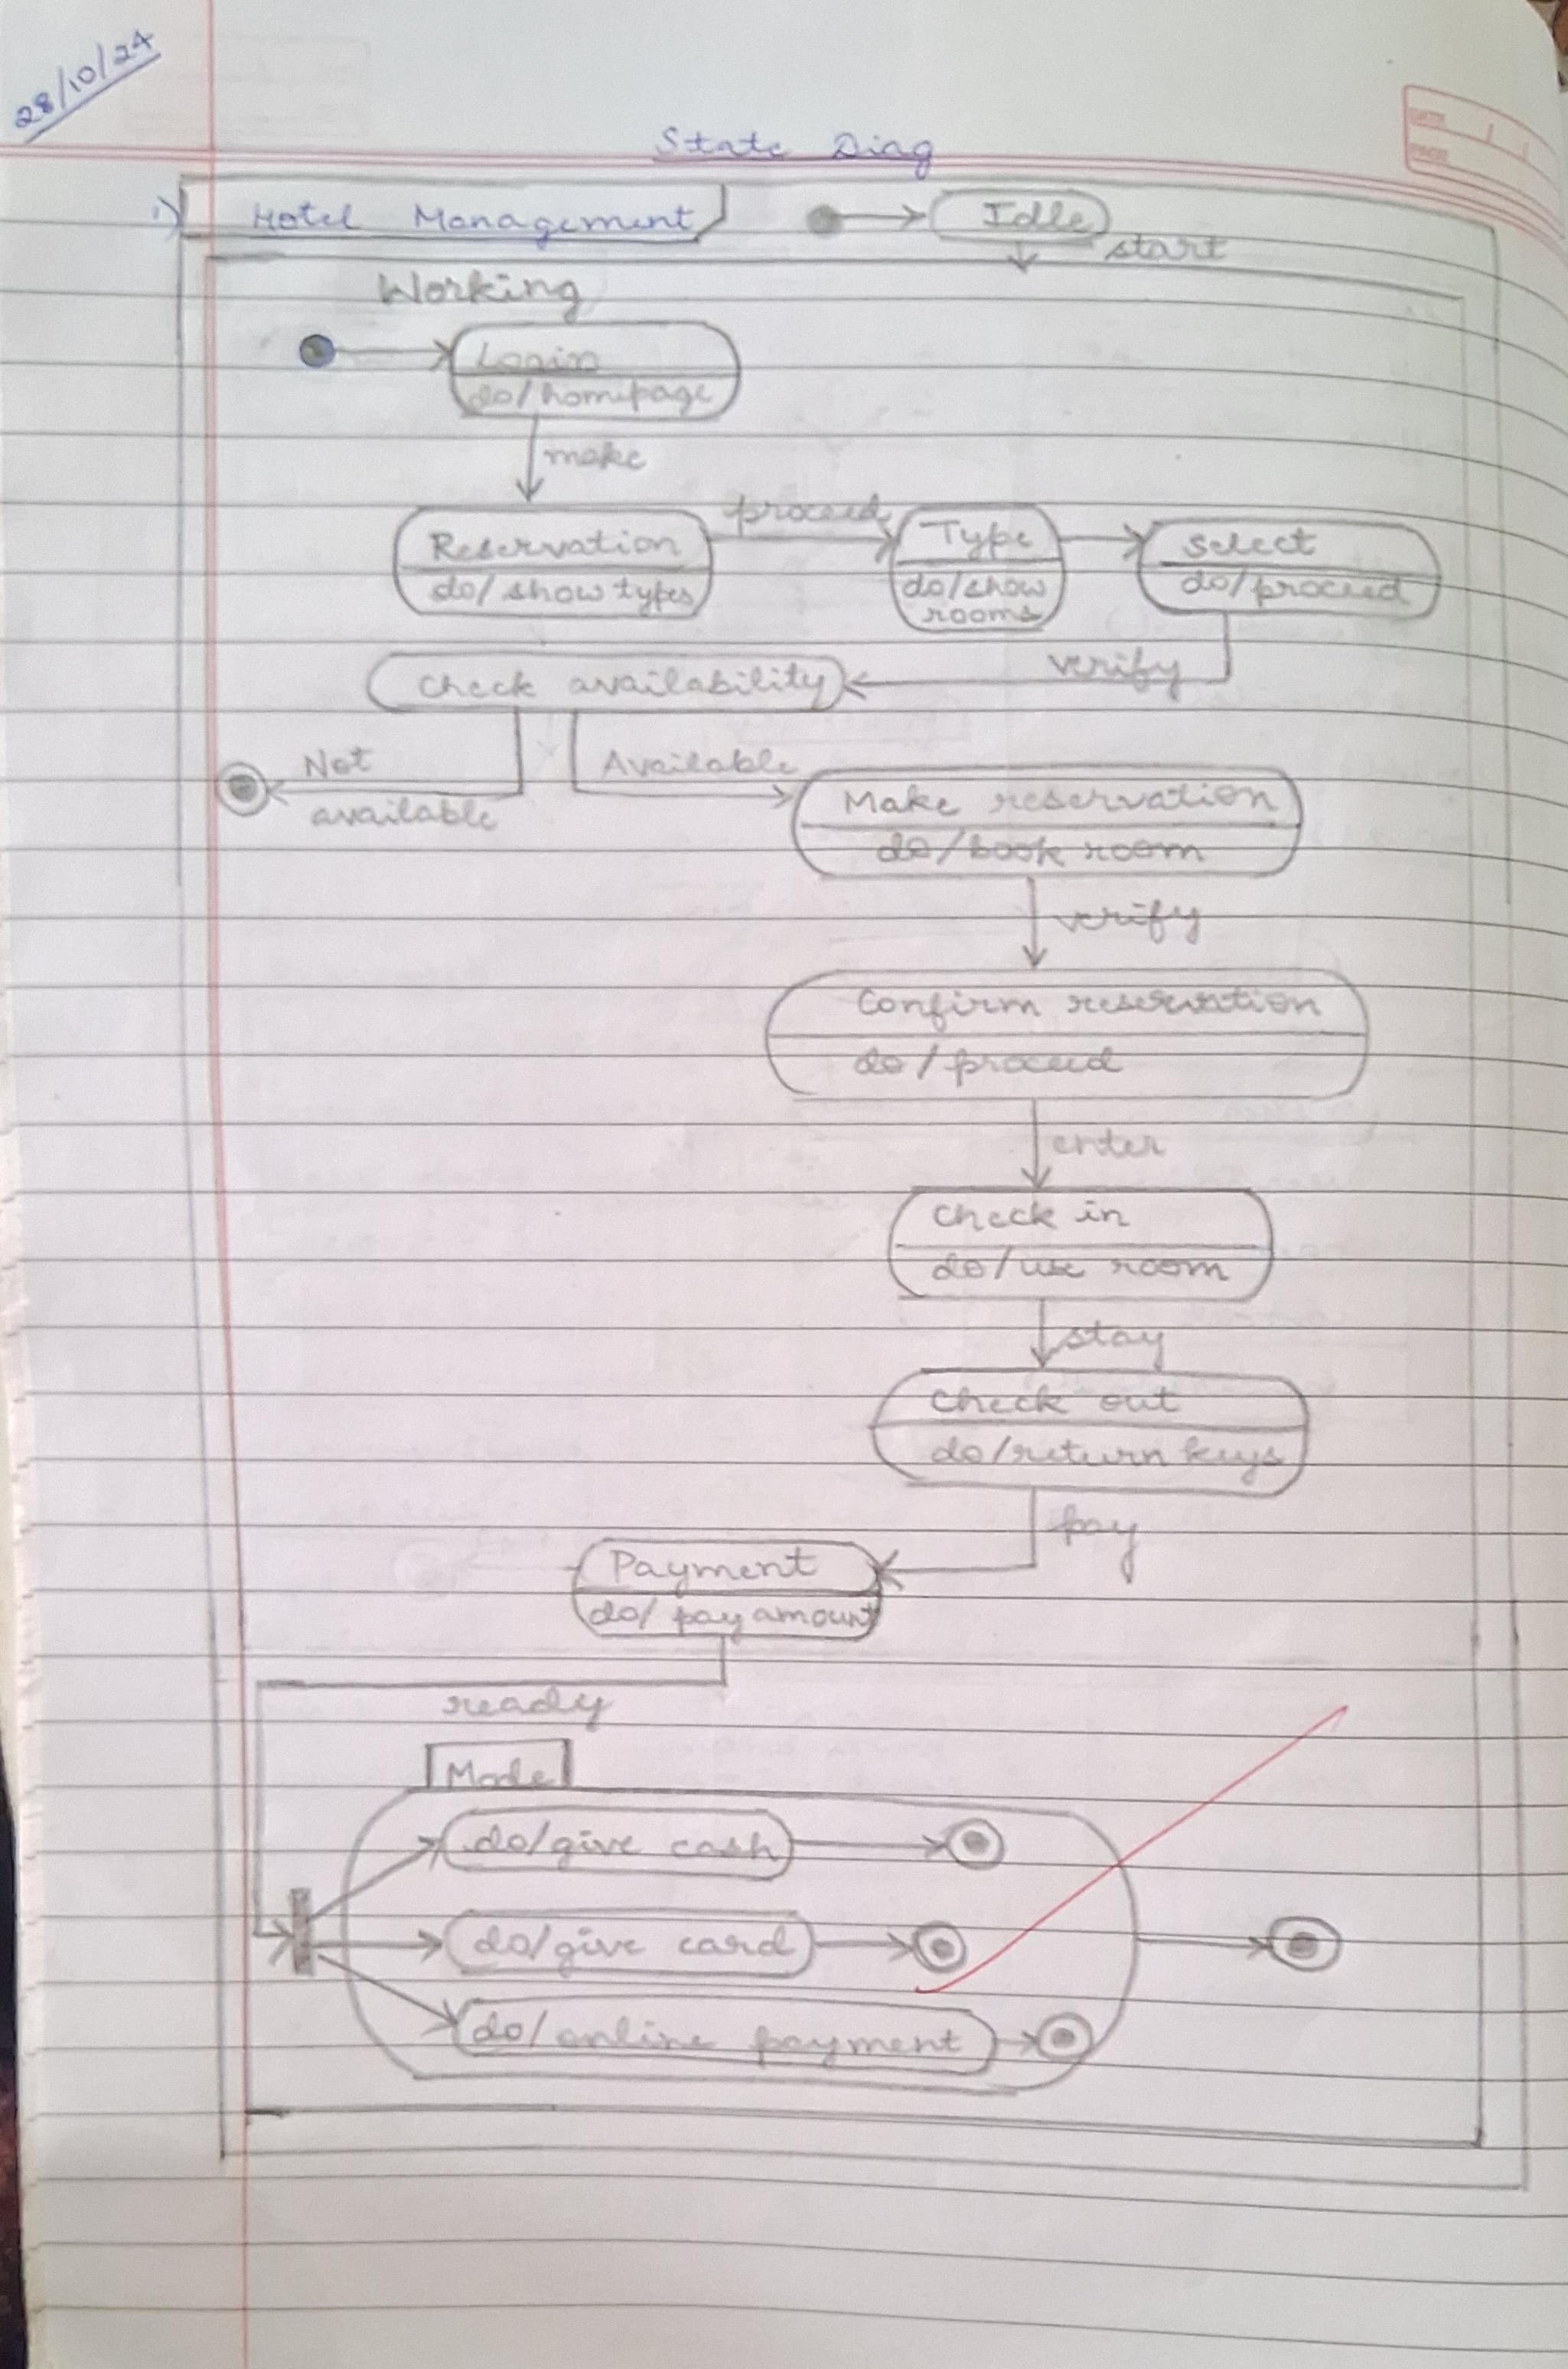 28/10/24
DATE
PAGE
State Diag
1) Hotel Management
Idle
start
Working
Login
do/homepage
make
Reservation
do/show types
proceed
Type
do/show
rooms
Select
do/proceed
verify
Check availability
Not
available
Available
Make reservation
do/book room
verify
Confirm reservation
do/proceed
enter
Check in
do/use room
stay
Check out
do/return keys
pay
Payment
do/pay amount
ready
Mode
do/give cash
do/give card
do/online payment